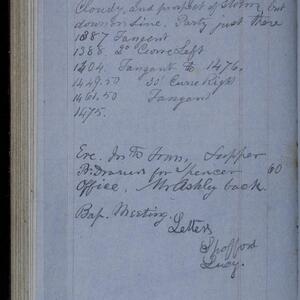 Cloudy, and prospect of storm, but
down on line. Party just there
1387 Tangent
1388 2° Curve Left
1404 Tangent to 1476.
1449.50 30' Curve Right
1461.50 Tangent
1475.
Eve. In To Town, Supper
for Spencer 60
Office. Mr Ashley back.
Bap. Meeting.
Letters
Spofford
Lucy.